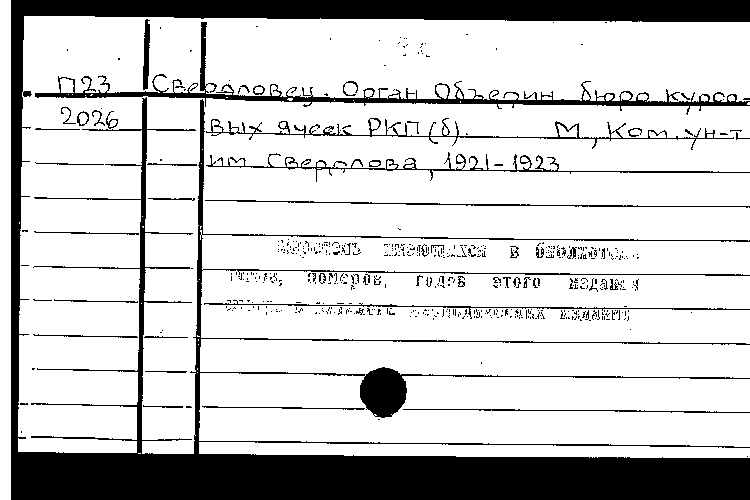 П23 Свердловец. Орган Объедин. бюро курсо-
2026 вых ячеек РКП(б). М., Ком. ун-т
им Свердлова, 1921-1923
имеющихся в библиотеке
томов, номеров, годов этого издания